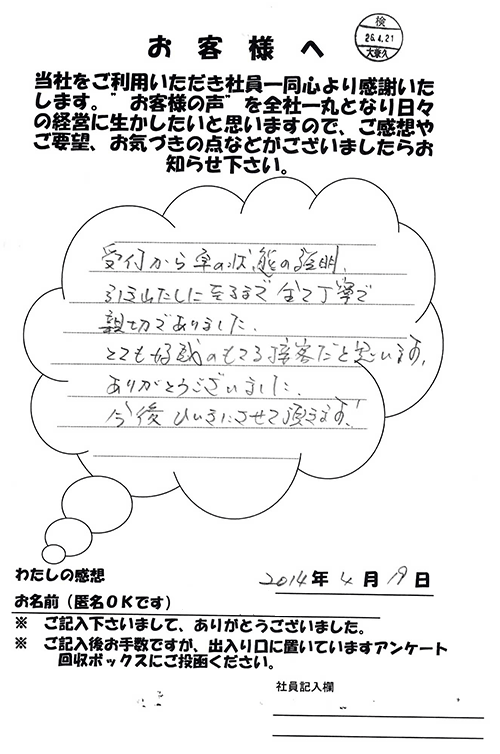 お客様へ
検
26.4.21
当社をご利用いただき社員一同心より感謝いた
します。”お客様の声”を全社一丸となり日々
の経営に生かしたいと思いますので、ご感想や
ご要望、お気づきの点などがございましたらお
知らせ下さい。
受付から車の状態の説明、
引き出たしに至るまで全て丁寧で
親切でありました、
とても好感のもてる接客だと思います。
ありがとうございました、
今後ひいきにさせて頂きます!
わたしの感想
2014年4月19日
お名前(匿名OKです)
※ ご記入下さいまして、ありがとうございました。
※ ご記入後お手数ですが、出入り口に置いていますアンケート
回収ボックスにご投函ください。
社員記入欄